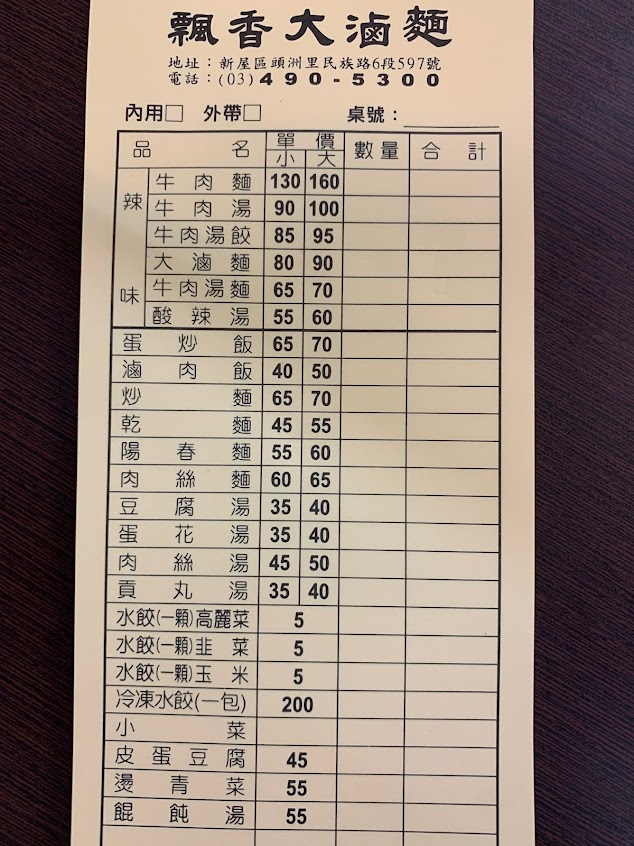 飄香大滷麵
地址：新屋區頭洲里民族路6段597號
電話：(03)490-5300
內用□ 外帶□ 桌號：
品名 單價 數量 合計
小 大
辣味
牛肉麵 130 160
牛肉湯 90 100
牛肉湯餃 85 95
大滷麵 80 90
牛肉湯麵 65 70
酸辣湯 55 60
蛋炒飯 65 70
滷肉飯 40 50
炒麵 65 70
乾麵 45 55
陽春麵 55 60
肉絲麵 60 65
豆腐湯 35 40
蛋花湯 35 40
肉絲湯 45 50
貢丸湯 35 40
水餃(一顆)高麗菜 5
水餃(一顆)韭菜 5
水餃(一顆)玉米 5
冷凍水餃(一包) 200
小菜
皮蛋豆腐 45
燙青菜 55
餛飩湯 55